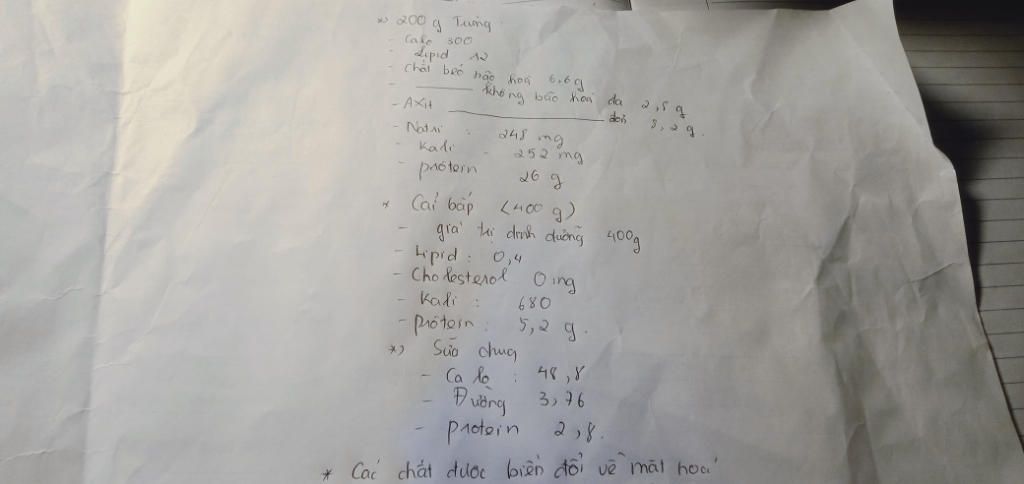 *) 200 g Trứng
- Calo 300
- Lipid 12
- Chất béo bão hoà 6.6g
- ——— không bão hoà đa 2,8 g
- Axit ——————— đơn 8,2 g.
- Natri : 248 mg
- Kali - 252 mg
- protein 26 g
* Cải bắp (400 g)
- giá trị dinh dưỡng 400g
- Lipid : 0,4
- Cholesterol 0 mg
- Kali : 680
- protein : 5,2 g.
*) Sữa chua
- Ca lo : 48,8
- Đường 3,76
- protein 2,8.
* Các chất được biến đổi về mặt hoá